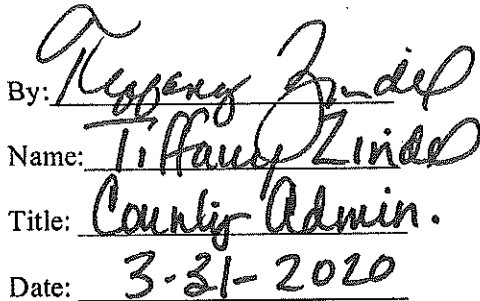 By: Tiffany Zindel
Name: Tiffany Zindel
Title: County Admin.
Date: 3-31-2020